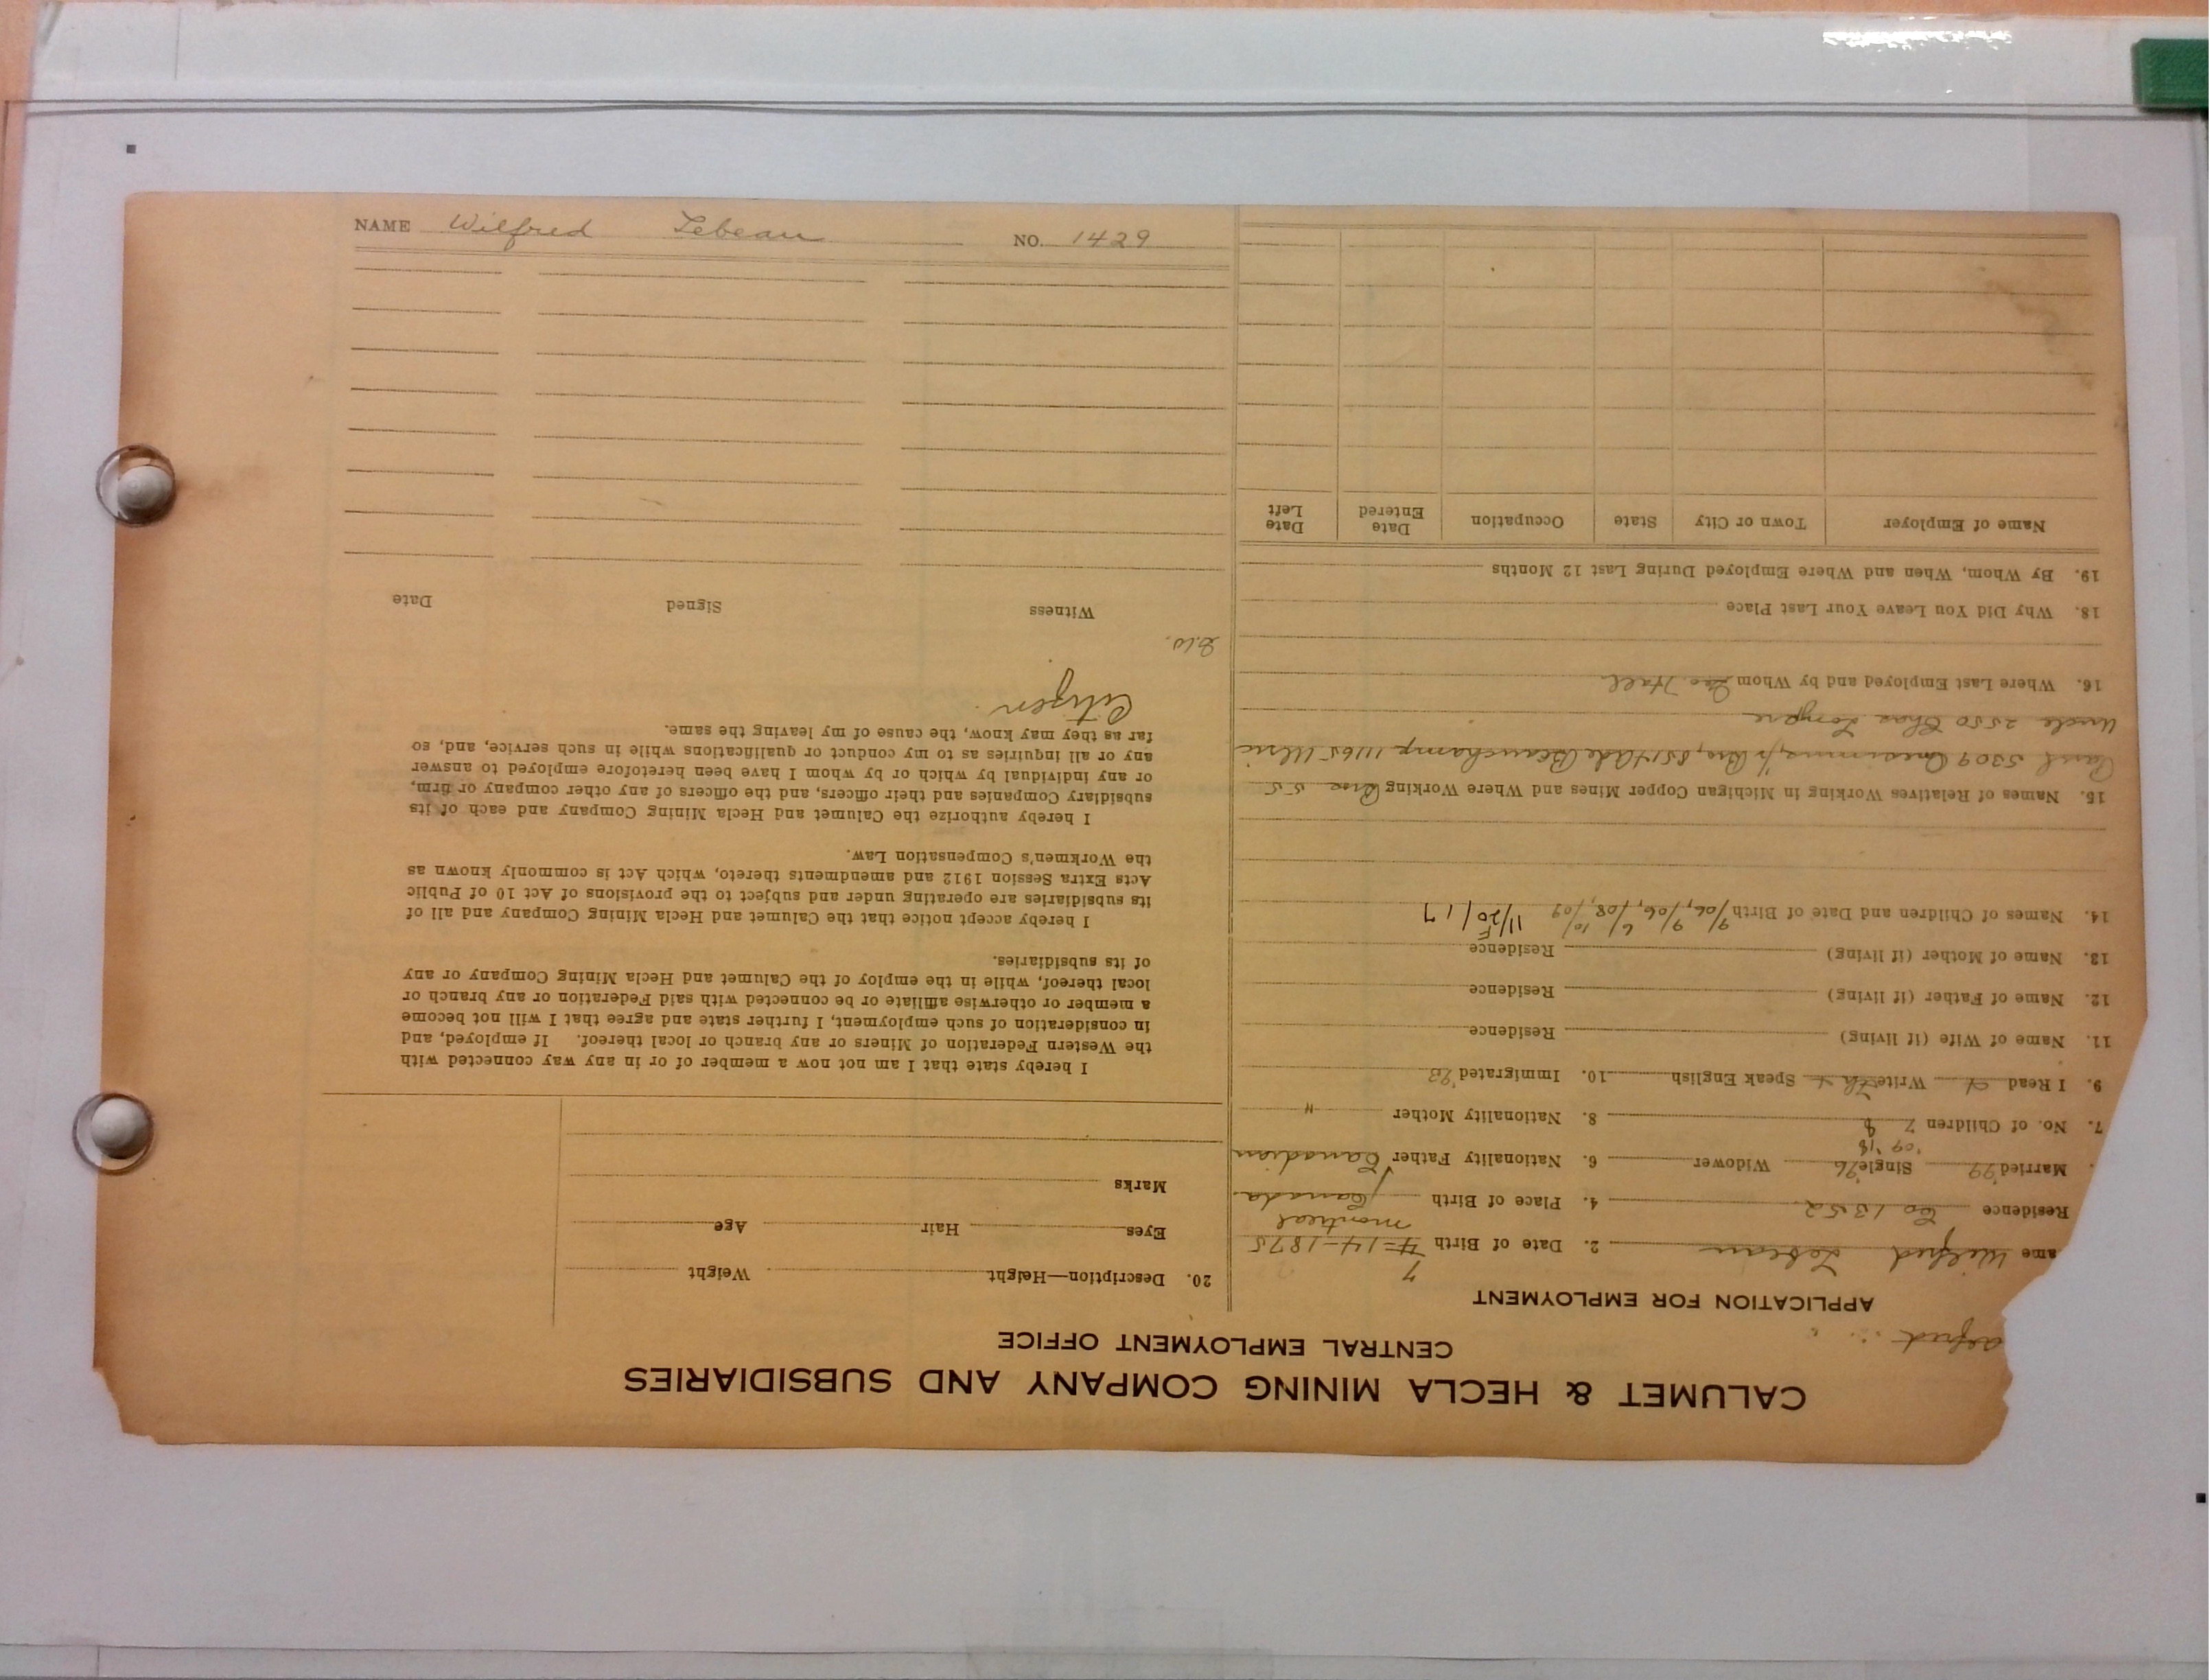 CALUMET & HECLA MINING COMPANY AND SUBSIDIARIES
CENTRAL EMPLOYMENT OFFICE
Alfred
APPLICATION FOR EMPLOYMENT
ame Wilfred Lebeau 2. Date of Birth 7 4-14-1875
Residence Co 1352 4. Place of Birth Montreal Canada
Married '99 Single '96 Widower 6. Nationality Father Canadian
'09 '18
7. No. of Children 7 8 8. Nationality Mother "
9. I Read Write Speak English 10. Immigrated '93
11. Name of Wife (if living) Residence
12. Name of Father (if living) Residence
13. Name of Mother (if living) Residence
14. Names of Children and Date of Birth 11/20/17
15. Names of Relatives Working in Michigan Copper Mines and Where Working
Uncle 2550 Chas
16. Where Last Employed and by Whom Hall
18. Why Did You Leave Your Last Place
19. By Whom, When and Where Employed During Last 12 Months
Name of Employer Town or City State Occupation Date Entered Date Left
20. Description—Height Weight
Eyes Hair Age
Marks
I hereby state that I am not now a member of or in any way connected with
the Western Federation of Miners or any branch or local thereof. If employed, and
in consideration of such employment, I further state and agree that I will not become
a member or otherwise affiliate or be connected with said Federation or any branch or
local thereof, while in the employ of the Calumet and Hecla Mining Company or any
of its subsidiaries.
I hereby accept notice that the Calumet and Hecla Mining Company and all of
its subsidiaries are operating under and subject to the provisions of Act 10 of Public
Acts Extra Session 1912 and amendments thereto, which Act is commonly known as
the Workmen's Compensation Law.
I hereby authorize the Calumet and Hecla Mining Company and each of its
subsidiary Companies and their officers, and the officers of any other company or firm,
or any individual by which or by whom I have been heretofore employed to answer
any or all inquiries as to my conduct or qualifications while in such service, and, so
far as they may know, the cause of my leaving the same.
Citizen
Witness Signed Date
NAME Wilfred Lebeau NO. 1429